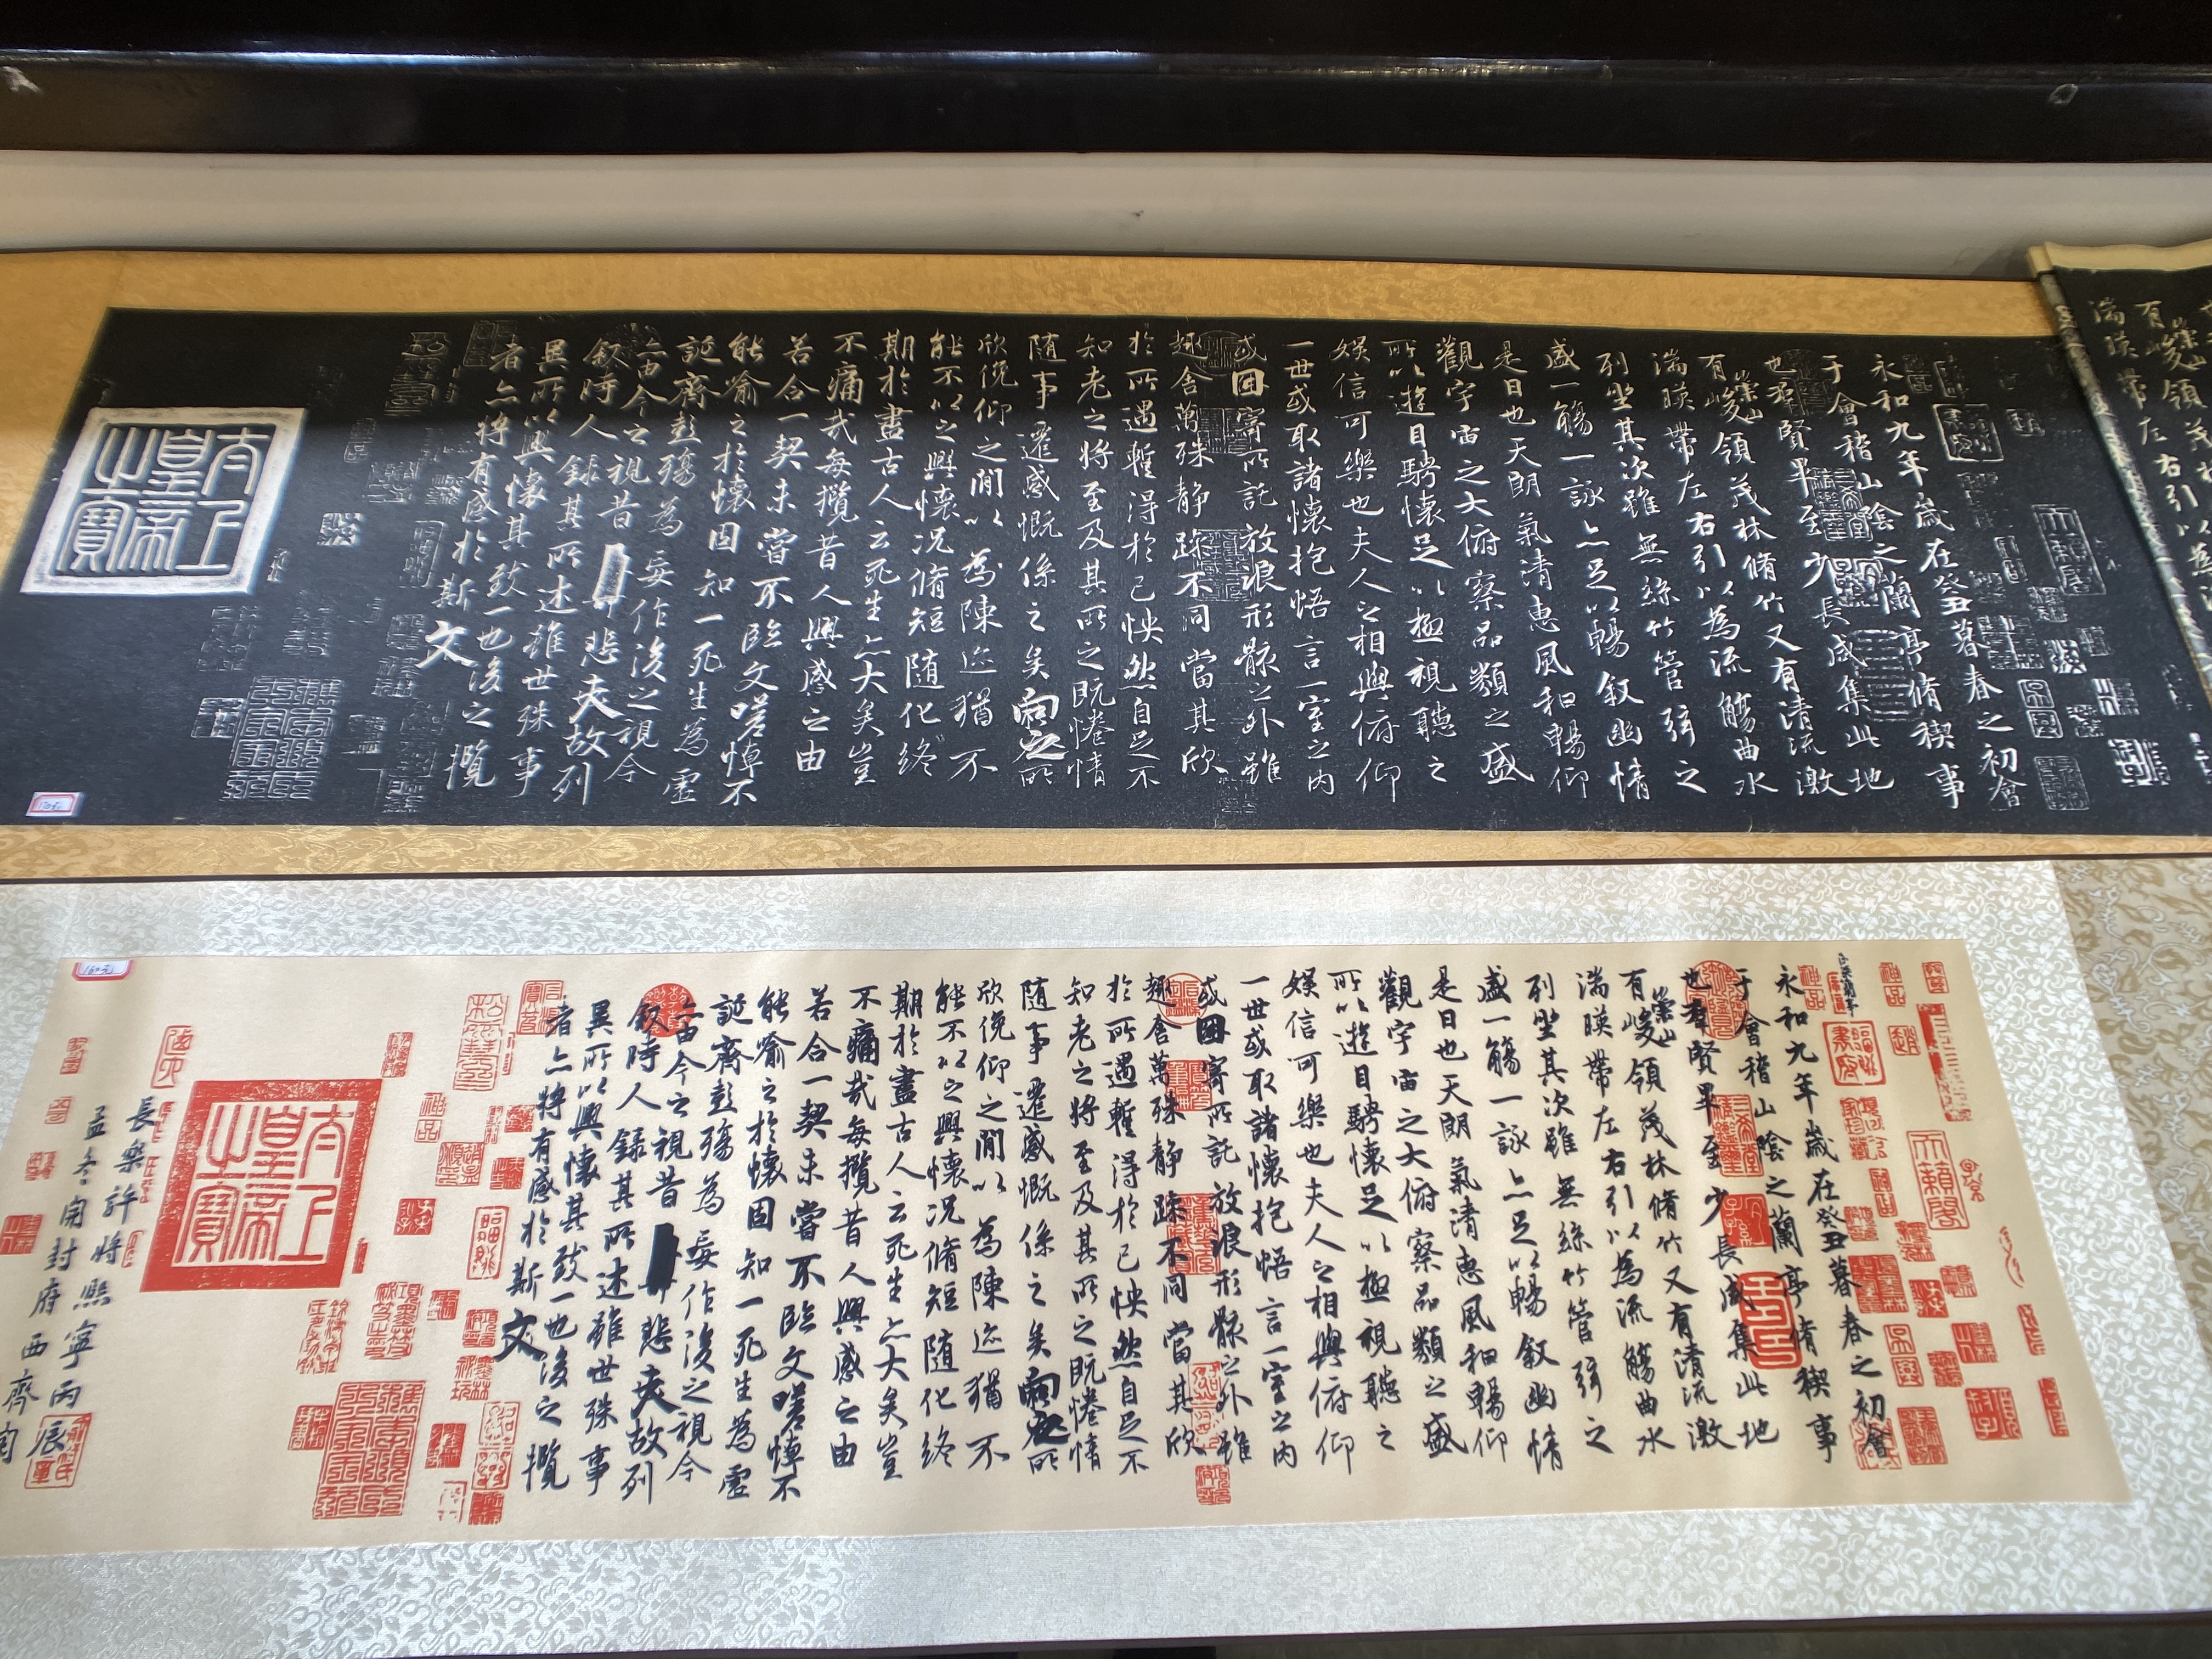 有崇山峻領茂林
湍暎帶左右引以為
永和九年歲在癸丑暮春之初會
于會稽山陰之蘭亭脩稧事
也群賢畢至少長咸集此地
有崇山峻領茂林脩竹又有清流激
湍暎帶左右引以為流觴曲水
列坐其次雖無絲竹管弦之
盛一觴一詠亦足以暢敘幽情
是日也天朗氣清惠風和暢仰
觀宇宙之大俯察品類之盛
所以遊目騁懷足以極視聽之
娛信可樂也夫人之相與俯仰
一世或取諸懷抱悟言一室之內
或因寄所託放浪形骸之外雖
趣舍萬殊靜躁不同當其欣
於所遇蹔得於己怏然自足不
知老之將至及其所之既惓情
隨事遷感慨係之矣向之所
欣俛仰之閒以為陳迹猶不
能不以之興懷況脩短隨化終
期於盡古人云死生亦大矣豈
不痛哉每攬昔人興感之由
若合一契未嘗不臨文嗟悼不
能喻之於懷固知一死生為虛
誕齊彭殤為妄作後之視今
亦由今之視昔悲夫故列
敘時人錄其所述雖世殊事
異所以興懷其致一也後之攬
者亦將有感於斯文
太上皇帝之寶
天籟閣
永和九年歲在癸丑暮春之初會
于會稽山陰之蘭亭脩稧事
也群賢畢至少長咸集此地
有崇山峻領茂林脩竹又有清流激
湍暎帶左右引以為流觴曲水
列坐其次雖無絲竹管弦之
盛一觴一詠亦足以暢敘幽情
是日也天朗氣清惠風和暢仰
觀宇宙之大俯察品類之盛
所以遊目騁懷足以極視聽之
娛信可樂也夫人之相與俯仰
一世或取諸懷抱悟言一室之內
或因寄所託放浪形骸之外雖
趣舍萬殊靜躁不同當其欣
於所遇蹔得於己怏然自足不
知老之將至及其所之既惓情
隨事遷感慨係之矣向之所
欣俛仰之閒以為陳迹猶不
能不以之興懷況脩短隨化終
期於盡古人云死生亦大矣豈
不痛哉每攬昔人興感之由
若合一契未嘗不臨文嗟悼不
能喻之於懷固知一死生為虛
誕齊彭殤為妄作後之視今
亦由今之視昔悲夫故列
敘時人錄其所述雖世殊事
異所以興懷其致一也後之攬
者亦將有感於斯文
太上皇帝之寶
長樂許將熙寧丙辰
孟冬開封府西齊閱
160元